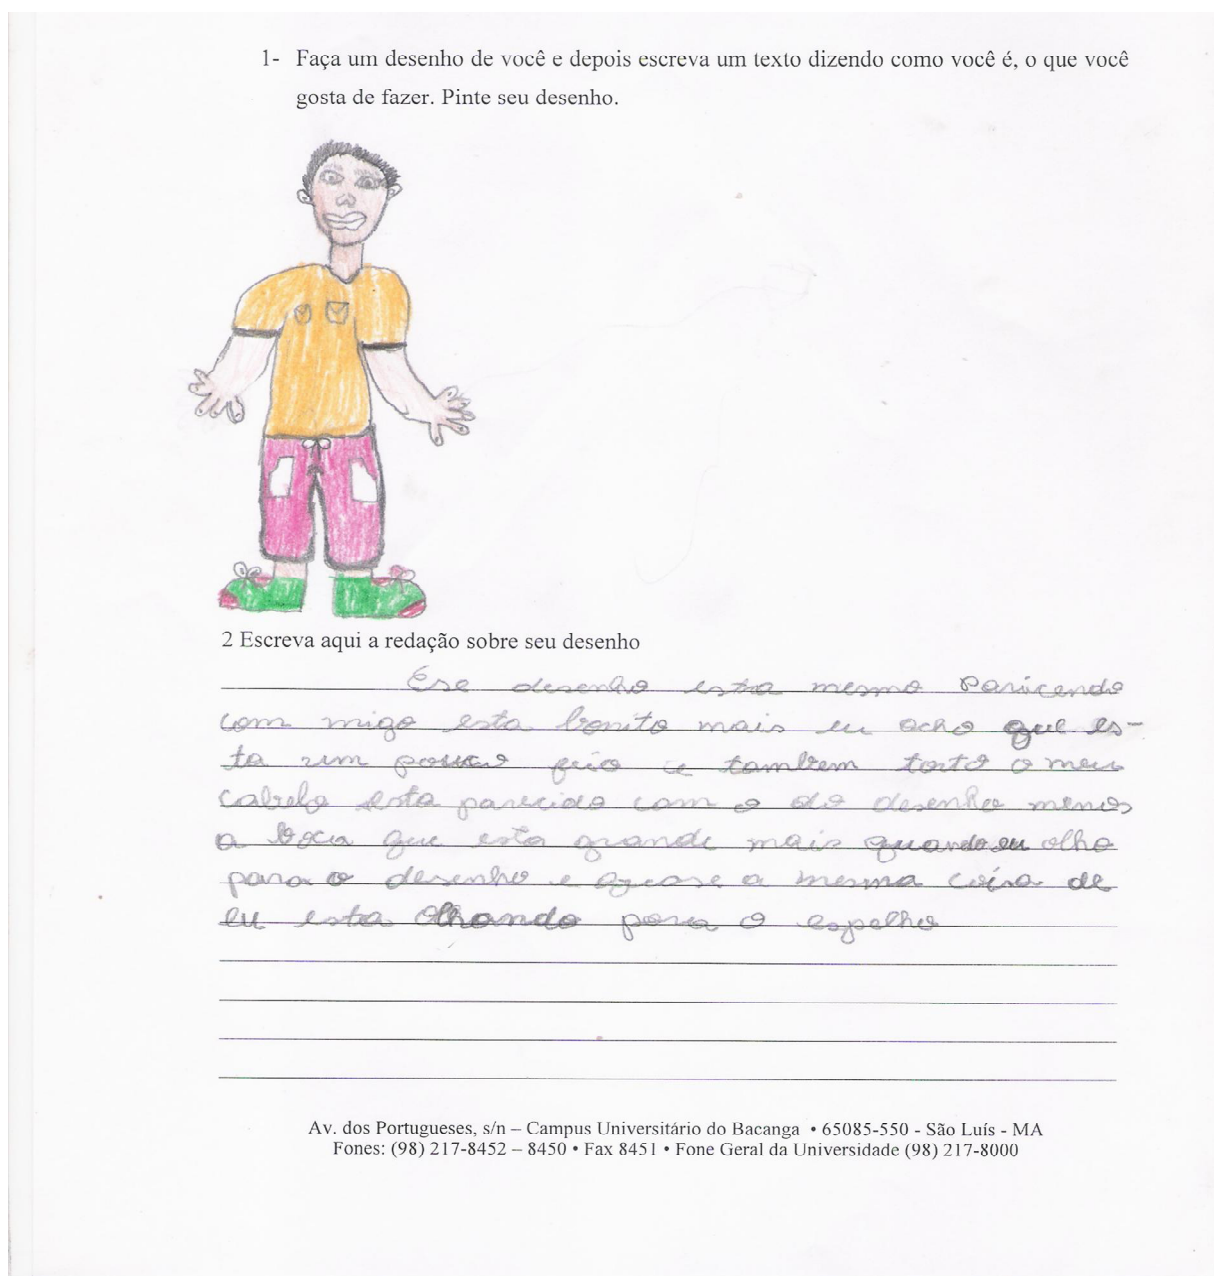 1- Faça um desenho de você e depois escreva um texto dizendo como você é, o que você
gosta de fazer. Pinte seu desenho.
2 Escreva aqui a redação sobre seu desenho
Ese desenho esta mesmo Paricendo
com migo esta bonito mais eu acho que es-
ta um pouco feio e tambem torto o meu
cabelo esta parecido com o do desenho menos
a boca que esta grande mais quando eu olho
para o desenho e a mesma coisa de
eu esta olhando para o espelho
Av. dos Portugueses, s/n – Campus Universitário do Bacanga • 65085-550 - São Luís - MA
Fones: (98) 217-8452 – 8450 • Fax 8451 • Fone Geral da Universidade (98) 217-8000